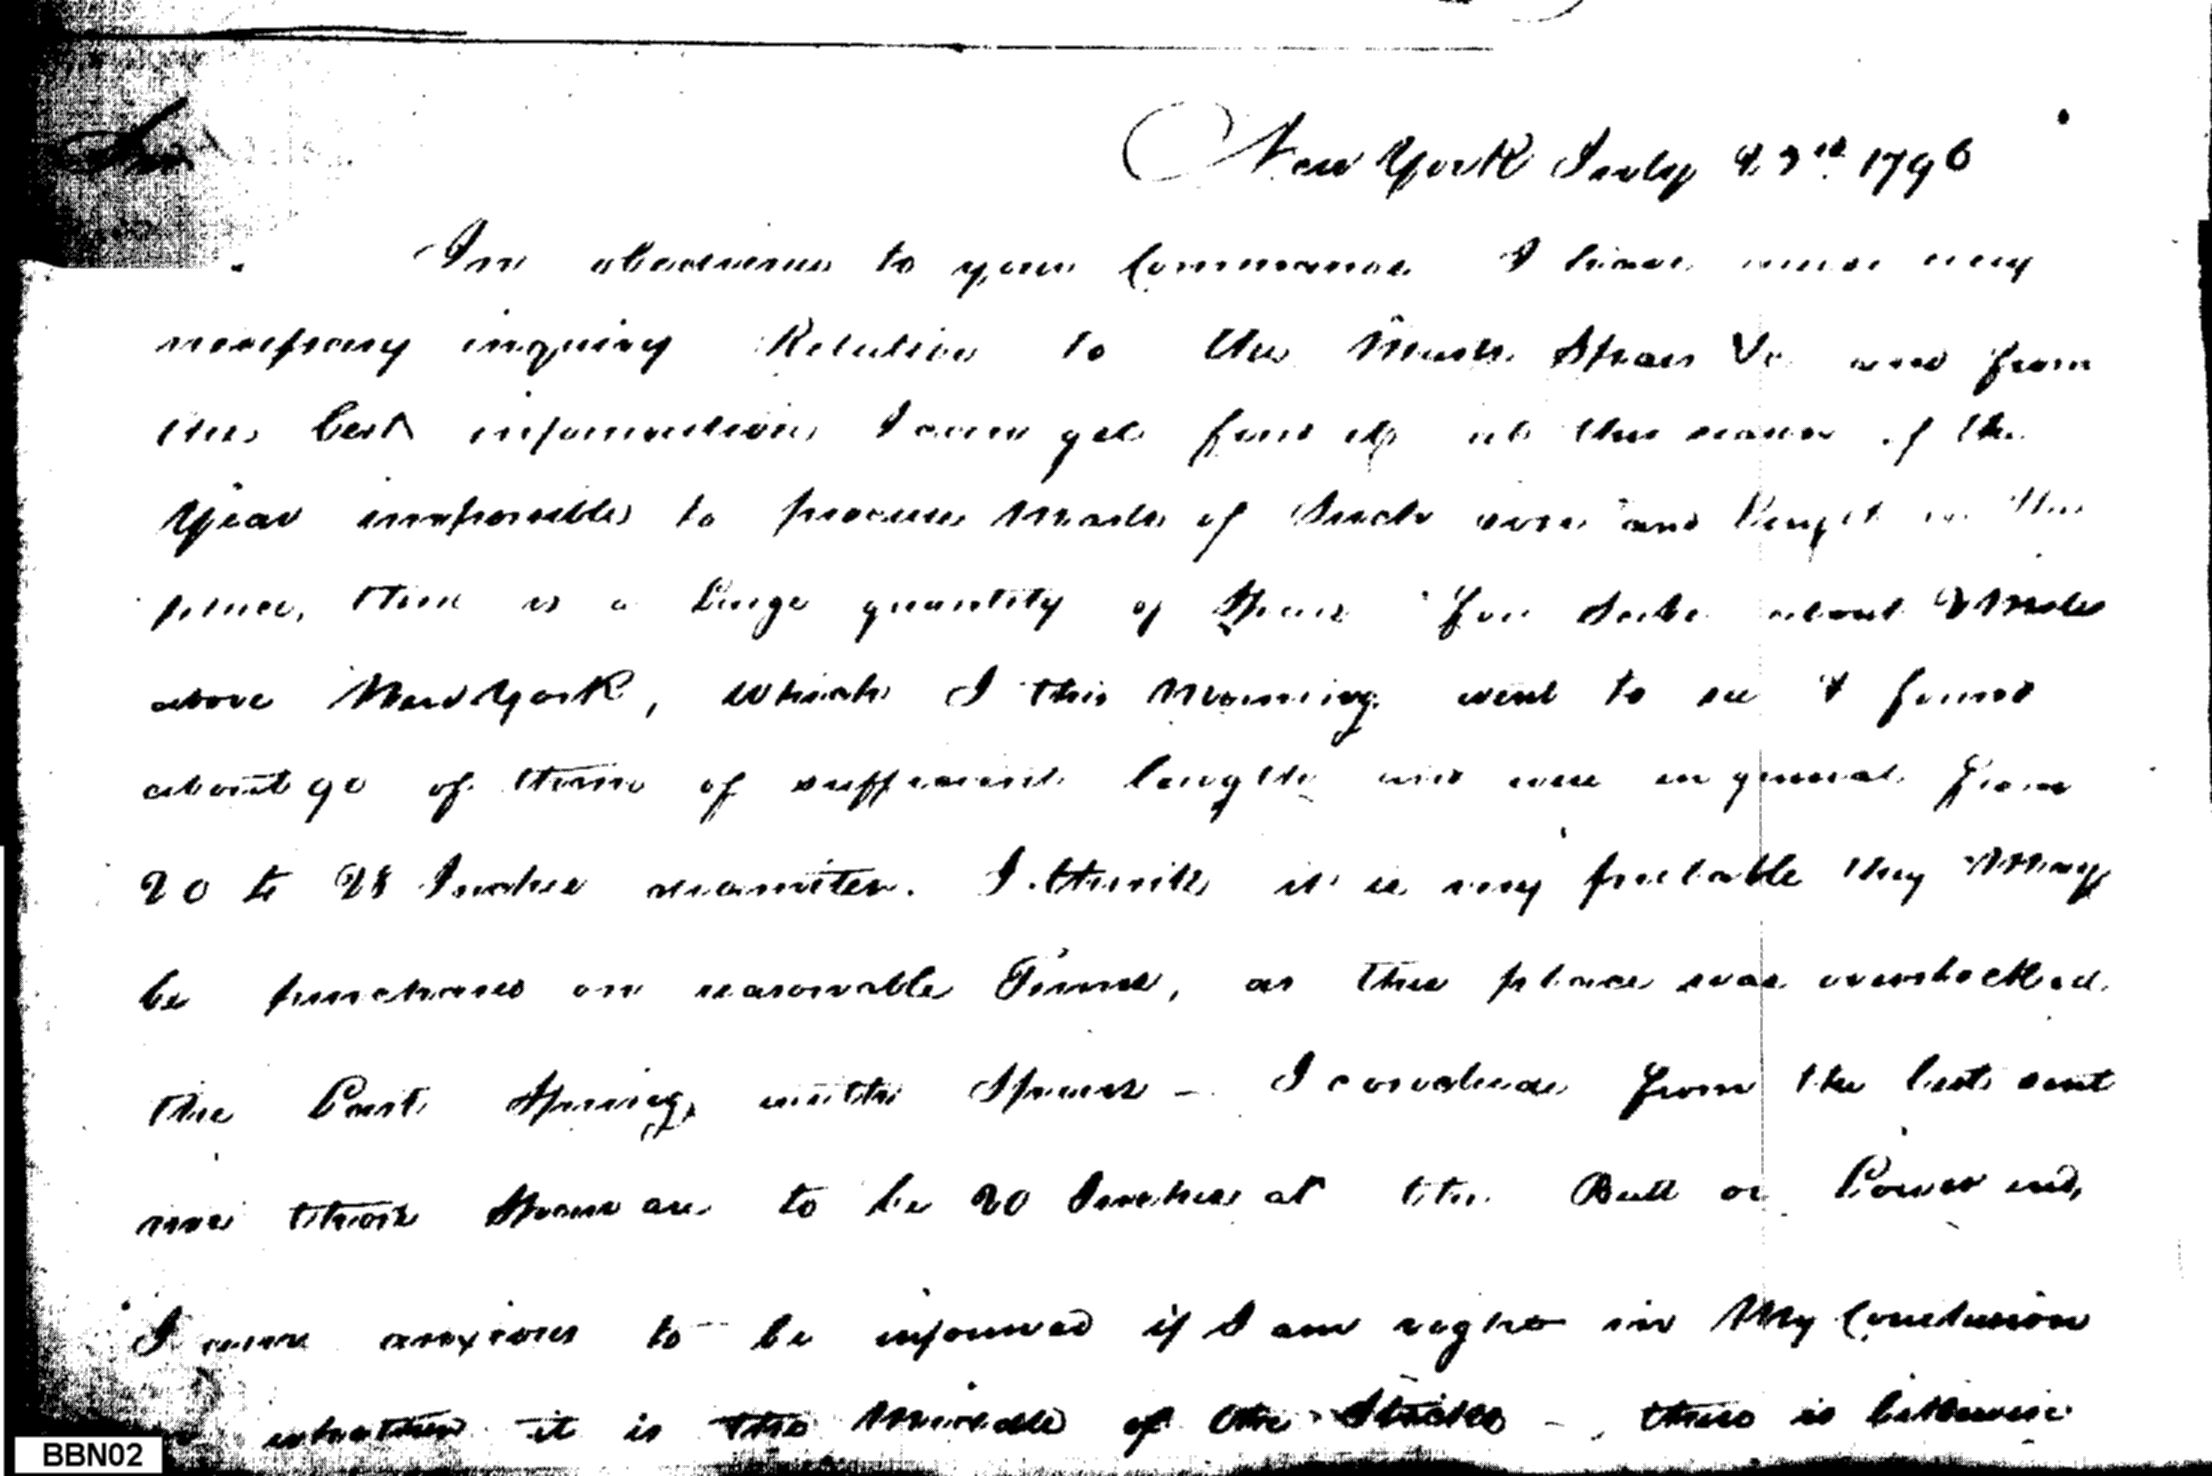 Sir
New York July 23rd 1796
In obedience to your Commands I have made every
necessary inquiry Relative to the Masts Spars &c and from
the best information I can get find it at this season of the
Year impossible to procure Masts of Such size and lenght in this
place, there is a Large quantity of Spars for Sale about 2 Miles
above New York, which I this Morning went to see & found
about 90 of them of sufficient length and were in general from
20 to 28 Inches diameter. I think it is very probable they May
be purchased on reasonable Terms, as this place was overstocked
the Past Spring, with Spars – I conclude from the list sent
me those Spars are to be 20 Inches at the Butt or Lower end,
I am anxious to be informed if I am right in My Conclusion
or whether it is the Middle of the Sticks – there is likewise
BBN02